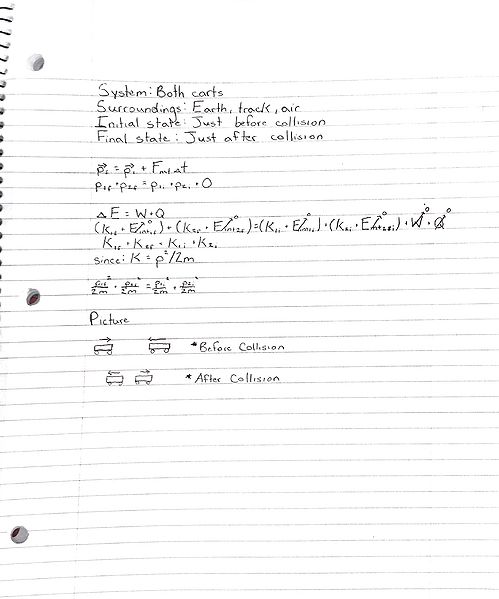 System: Both carts
Surroundings: Earth, track, air
Initial state: Just before collision
Final state: Just after collision
p⃗f = p⃗i + Fnet Δt
p1f + p2f = p1i + p2i + 0
ΔE = W + Q
(K1f + Eint1f→0) + (K2f + Eint2f→0) = (K1i + Eint1i→0) + (K2i + Eint2i→0) + W→0 + Q→0
K1f + K2f = K1i + K2i
since: K = p²/2m
p1f²/2m + p2f²/2m = p1i²/2m + p2i²/2m
Picture
*Before Collision
*After Collision